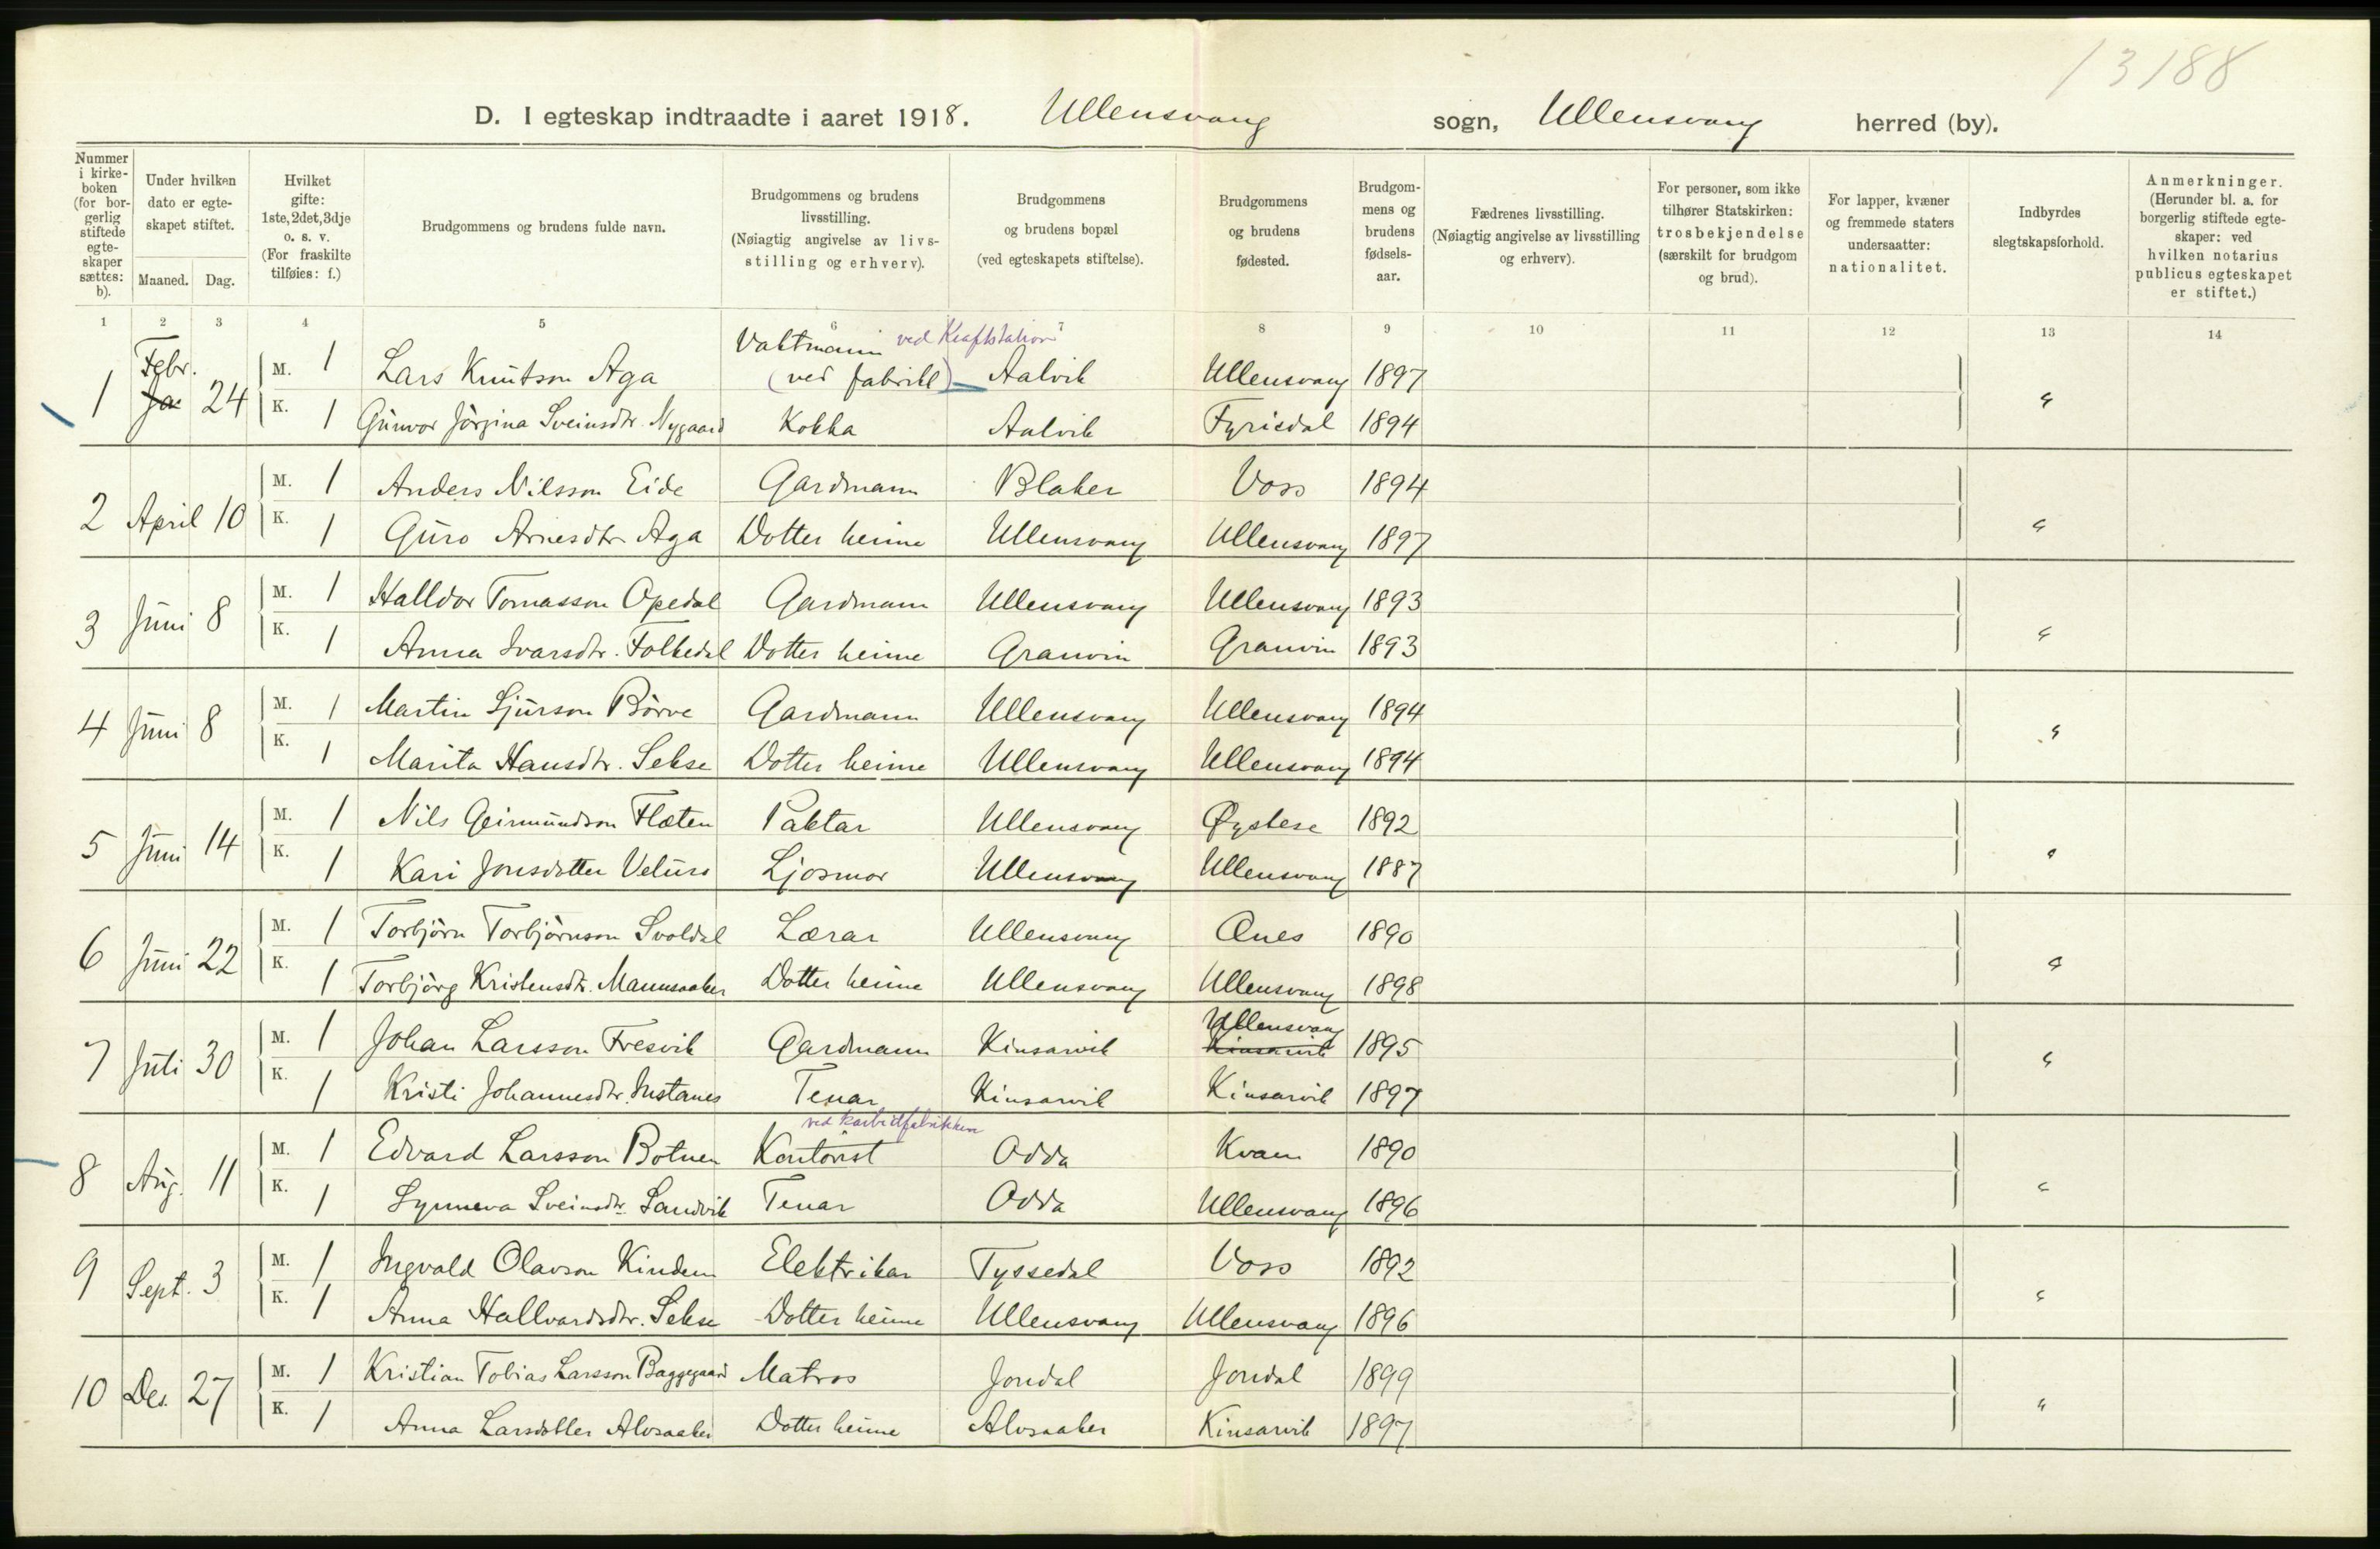 13188
D. I egteskap indtraadte i aaret 1918. Ullensvang sogn, Ullensvang herred (by).
Nummer i kirkeboken (for borgerlig stiftede egteskaper sættes: b).
Under hvilken dato er egteskapet stiftet.
Maaned. Dag.
Hvilket gifte: 1ste, 2det, 3dje o. s. v. (For fraskilte tilføies: f.)
Brudgommens og brudens fulde navn.
Brudgommens og brudens livsstilling. (Nøiagtig angivelse av livsstilling og erhverv).
Brudgommens og brudens bopæl (ved egteskapets stiftelse).
Brudgommens og brudens fødested.
Brudgommens og brudens fødselsaar.
Fædrenes livsstilling. (Nøiagtig angivelse av livsstilling og erhverv).
For personer, som ikke tilhører Statskirken: trosbekjendelse (særskilt for brudgom og brud).
For lapper, kvæner og fremmede staters undersaatter: nationalitet.
Indbyrdes slegtskapsforhold.
Anmerkninger. (Herunder bl. a. for borgerlig stiftede egteskaper: ved hvilken notarius publicus egteskapet er stiftet.)
1 2 3 4 5 6 7 8 9 10 11 12 13 14
Vaktmann ved Kraftstation
1 Febr. Ja 24 M. 1 Lars Knutson Aga (ved fabrikk) Aalvik Ullensvang 1897 "
K. 1 Gunvor Jörgina Sveinsdtr. Nygaard Kokka Aalvik Fyrisdal 1894
2 April 10 M. 1 Anders Nilsson Eide Gardmann Blaker Voss 1894 "
K. 1 Guro Arnesdtr Aga Dotter heime Ullensvang Ullensvang 1897
3 Juni 8 M. 1 Halldor Tomasson Opedal Gardmann Ullensvang Ullensvang 1893 "
K. 1 Anna Ivarsdtr. Folkedal Dotter heime Granvin Granvin 1893
4 Juni 8 M. 1 Martin Sjurson Börve Gardmann Ullensvang Ullensvang 1894 "
K. 1 Marita Hansdtr. Sekse Dotter heime Ullensvang Ullensvang 1894
5 Juni 14 M. 1 Nils Geirmundson Flæten Paktar Ullensvang Øystese 1892 "
K. 1 Kari Jonsdotter Velure Ljosmor Ullensvang Ullensvang 1887
6 Juni 22 M. 1 Torbjörn Torbjörnson Svoldal Lærar Ullensvang Ænes 1890 "
K. 1 Torbjörg Kristensdtr. Mannsaaker Dotter heime Ullensvang Ullensvang 1898
Ullensvang
7 Juli 30 M. 1 Johan Larsson Fresvik Gardmann Kinsarvik Kinsarvik 1895 "
K. 1 Kristi Johannesdtr. Instanes Tenar Kinsarvik Kinsarvik 1897
ved karbidfabrikken
8 Aug. 11 M. 1 Edvard Larsson Botnen Kontorist Odda Kvam 1890 "
K. 1 Synneva Sveinsdtr. Sandvik Tenar Odda Ullensvang 1896
9 Sept. 3 M. 1 Ingvald Olavson Kindem Elektrikar Tyssedal Voss 1892 "
K. 1 Anna Hallvardsdtr. Sekse Dotter heime Ullensvang Ullensvang 1896
10 Des. 27 M. 1 Kristian Tobias Larsson Baggegaard Matros Jondal Jondal 1899 "
K. 1 Anna Larsdotter Alvsaaker Dotter heime Alvsaaker Kinsarvik 1897